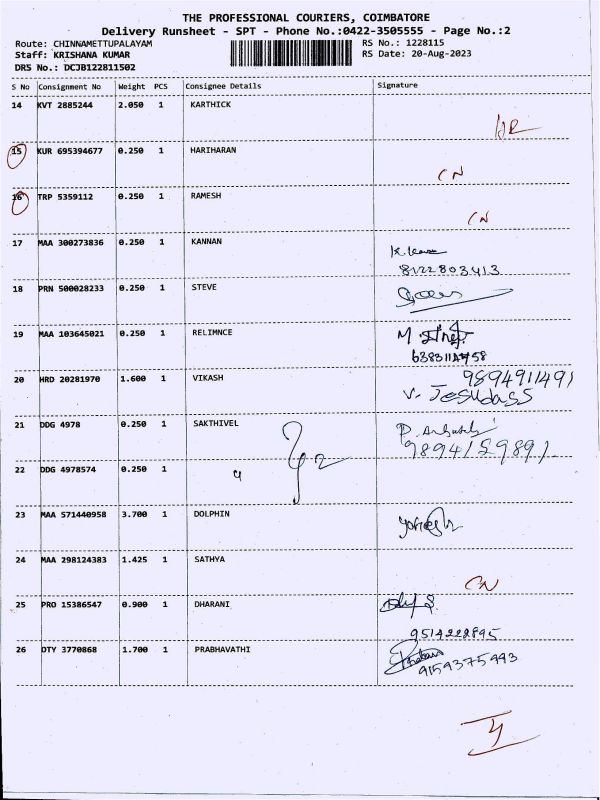 THE PROFESSIONAL COURIERS, COIMBATORE
Delivery Runsheet - SPT - Phone No.:0422-3505555 - Page No.:2
Route: CHINNAMETTUPALAYAM RS No.: 1228115
Staff: KRISHANA KUMAR RS Date: 20-Aug-2023
DRS No.: DCJB122811502
S No Consignment No Weight PCS Consignee Details Signature
14 KVT 2885244 2.050 1 KARTHICK
15 KUR 695394677 0.250 1 HARIHARAN
CN
16 TRP 5359112 0.250 1 RAMESH
CN
17 MAA 300273836 0.250 1 KANNAN
8122803413
18 PRN 500028233 0.250 1 STEVE
19 MAA 103645021 0.250 1 RELIMNCE
20 HRD 20281970 1.600 1 VIKASH 9894911491
V. Jesudass
21 DDG 4978 0.250 1 SAKTHIVEL
22 DDG 4978574 0.250 1
23 MAA 571440958 3.700 1 DOLPHIN
24 MAA 298124383 1.425 1 SATHYA
CN
25 PRO 15386547 0.900 1 DHARANI
9514222895
26 DTY 3770868 1.700 1 PRABHAVATHI
9159375943